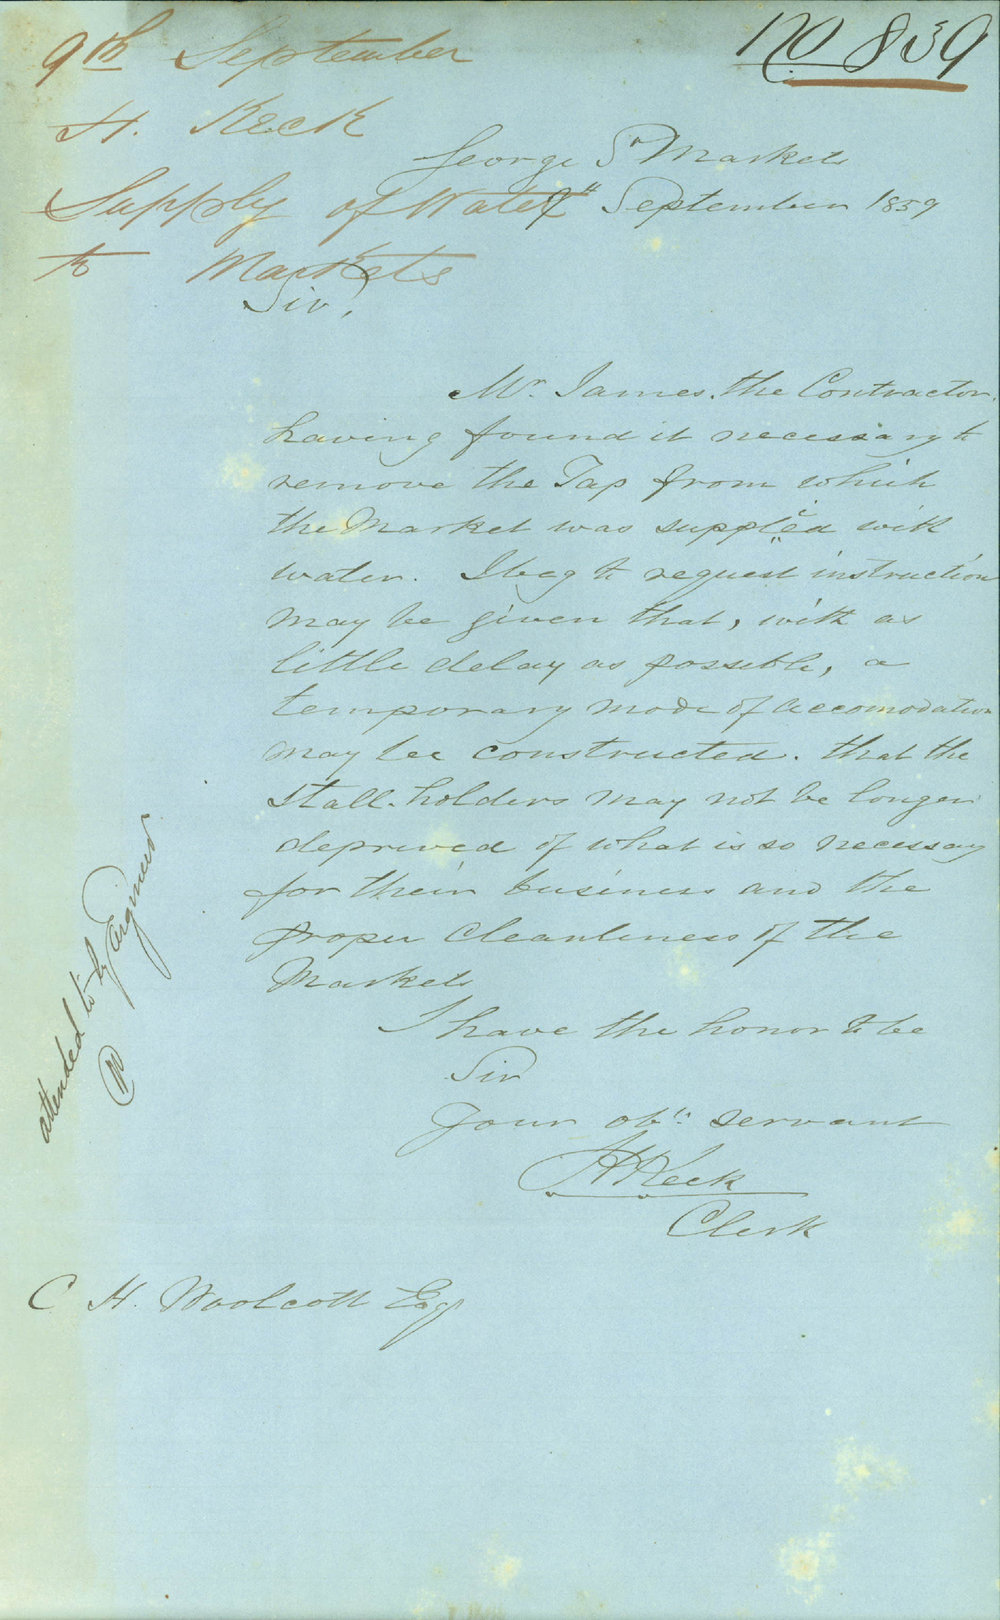 No 839
9th September
H. Keck
Supply of Water
to Markets
George St Markets
September 1859
Sir,
Mr James, the Contractor,
having found it necessary to
remove the Tap from which
the Market was supplied with
water. I beg to request instruction
may be given that, with as
little delay as possible, a
temporary mode of accomodation
may be constructed. that the
Stall-holders may not be longer
deprived of what is so necessary
for their business and the
proper Cleanliness of the
Markets
I have the honor to be
Sir
Your obt servant
H Keck
Clerk
C H. Woolcott Esqr
attended to by Engineer